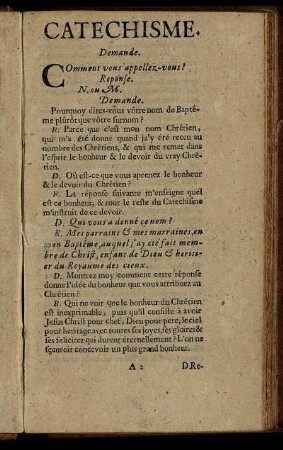 CATECHISME.
Demande.
Comment vous appellez-vous?
Reponse.
N. ou M.
Demande.
Pourquoy dites-vous vôtre nom de Baptê-
me plûtôt que vôtre surnom?
R. Parce que c'est mon nom Chrêtien,
qui m'a êté donné quand j'y êté receu au
nombre des Chrêtiens, & qui me remet dans
l'esprit le bonheur & le devoir du vray Chrê-
tien.
D. Où est-ce que vous aprenez le bonheur
& le devoir du Chrêtien?
R. La réponse suivante m'enseigne quel
est ce bonheur, & tout le reste du Catechisme
m'instruit de ce devoir.
D. Qui vous a donné ce nom?
R. Mes parrains & mes marraines, en
mon Baptême, auquel j'ay eté fait mem-
bre de Christ, enfant de Dieu & heriti-
er du Royaume des cieux.
D. Montrez moy comment cette réponse
donne l'idée du bonheur que vous attribuez au
Chrêtien?
R. Qui ne voir que le bonheur du Chrêtien
est inexprimable, puis qu'il consiste à avoir
Jesus Christ pour chef, Dieu pour pere, le ciel
pour heritage avec toutes ses joyes, ses gloires &
ses felicitez qui durent éternellement? L'on ne
sçauroit concevoir un plus grand bonheur.
A 2 D. Re-